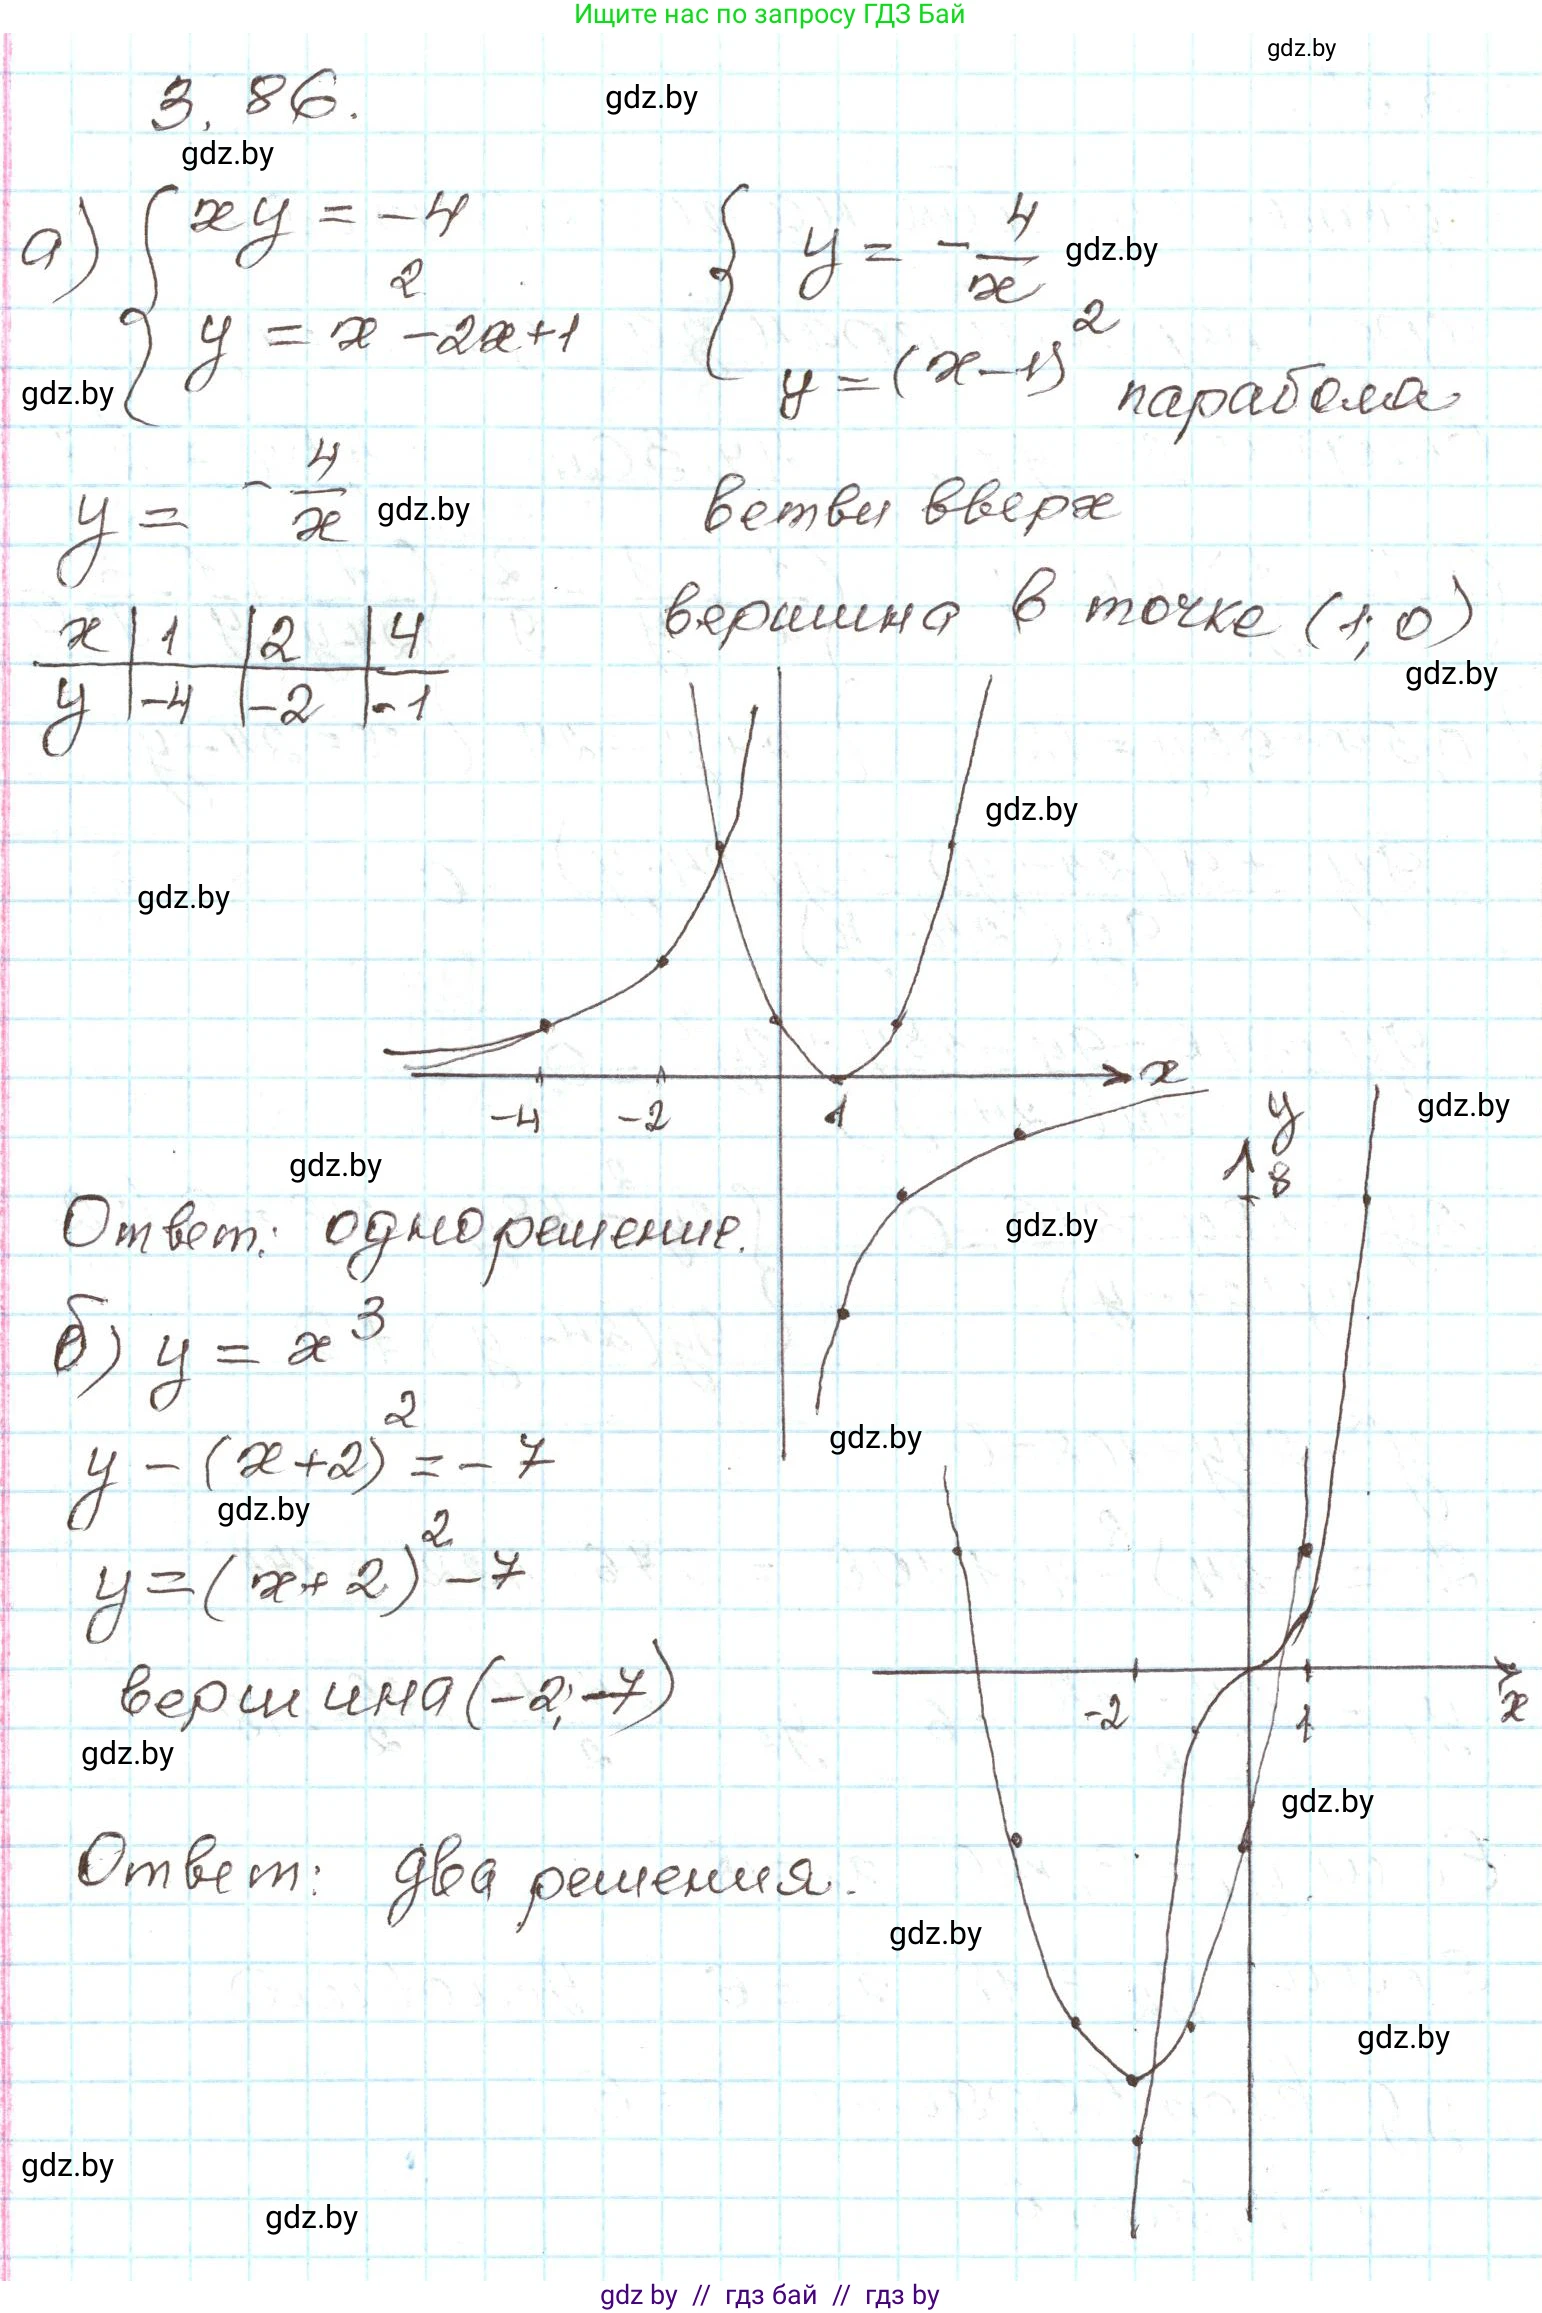 Ищите нас по запросу ГДЗ Бай
gdz.by
3.86.
gdz.by
gdz.by
а) { xy = -4
y = x² - 2x + 1
{ y = -4/x
gdz.by
y = (x-1)² парабола
gdz.by
y = -4/x
gdz.by
ветви вверх
x | 1 | 2 | 4
y | -4 | -2 | -1
вершина в точке (1; 0)
gdz.by
gdz.by
gdz.by
x
-4 -2 1
gdz.by
gdz.by
Ответ: одно решение.
gdz.by
y
8
б) y = x³
y - (x+2)² = -7
gdz.by
gdz.by
y = (x+2)² - 7
вершина (-2; -7)
-2 1 x
gdz.by
gdz.by
Ответ: два решения.
gdz.by
gdz.by
gdz.by
gdz.by
gdz by // гдз бай // гдз by